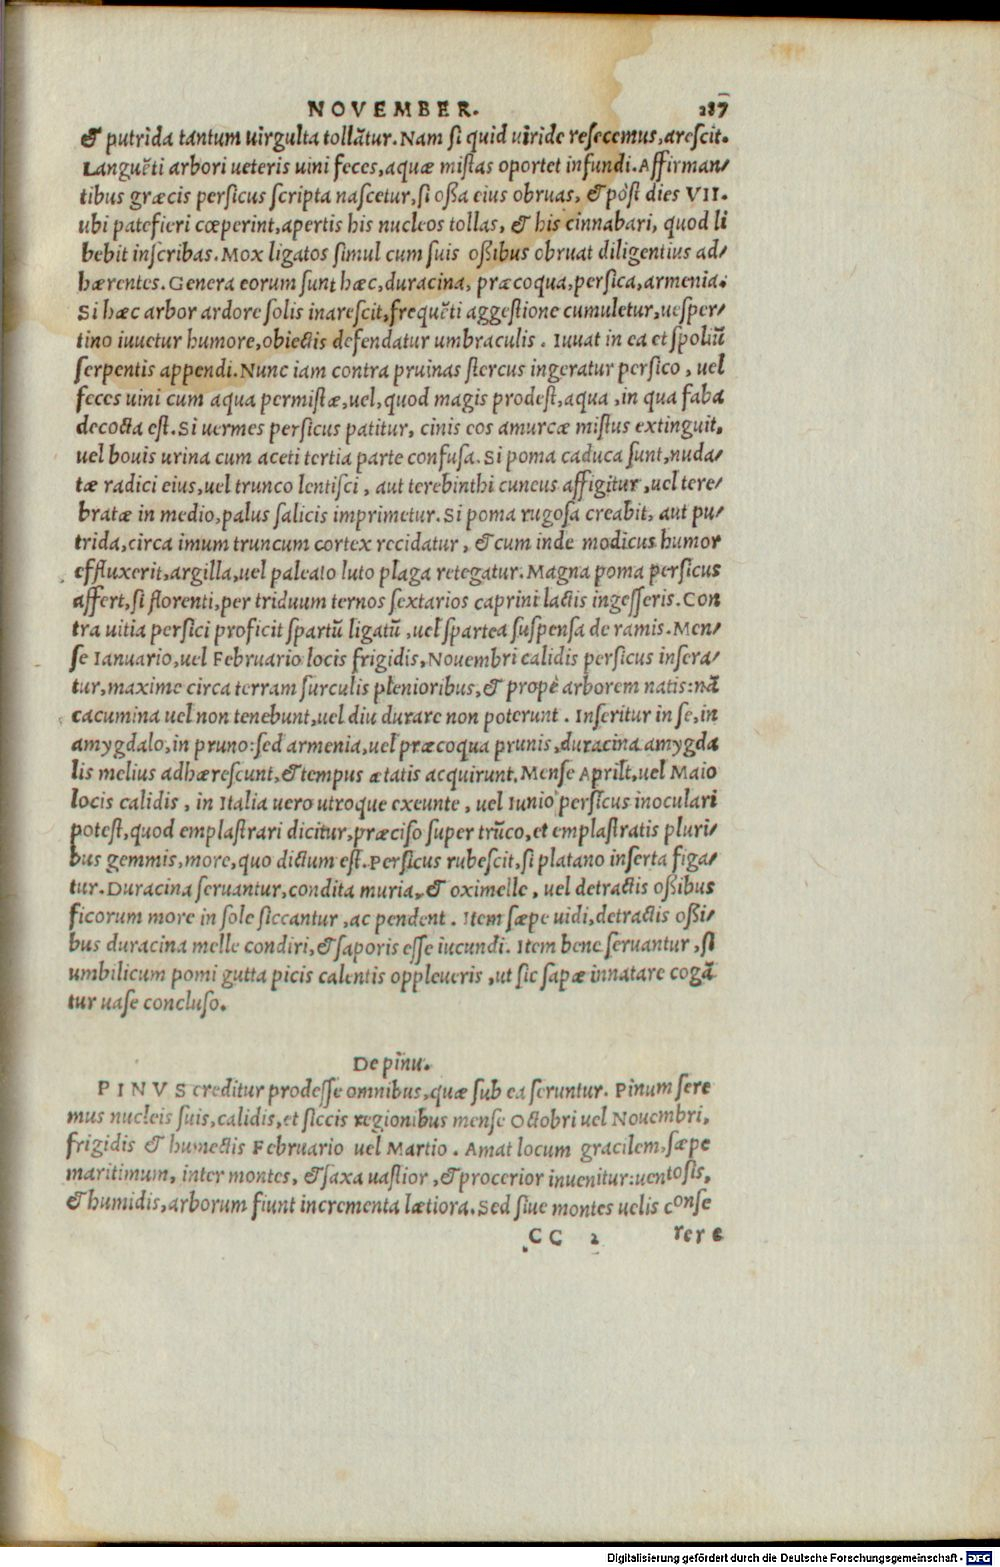 NOVEMBER. 287
& putrida tantum uirgulta tollãtur. Nam si quid uiride resecemus, arescit.
Languẽti arbori ueteris uini feces, aquæ mistas oportet infundi. Affirman/
tibus græcis persicus scripta nascetur, si ossa eius obruas, & pòst dies VII.
ubi patefieri cœperint, apertis his nucleos tollas, & his cinnabari, quod li
bebit inscribas. Mox ligatos simul cum suis ossibus obruat diligentius ad/
hærentes. Genera eorum sunt hæc, duracina, præcoqua, persica, armenia.
Si hæc arbor ardore solis inarescit, frequẽti aggestione cumuletur, uesper/
tino iuuetur humore, obiectis defendatur umbraculis. Iuuat in ea et spoliũ
serpentis appendi. Nunc iam contra pruinas stercus ingeratur persico, uel
feces uini cum aqua permistæ, uel, quod magis prodest, aqua, in qua faba
decocta est. Si uermes persicus patitur, cinis eos amurcæ mistus extinguit,
uel bouis urina cum aceti tertia parte confusa. Si poma caduca sunt, nuda/
tæ radici eius, uel trunco lentisci, aut terebinthi cuneus affigitur, uel tere/
bratæ in medio, palus salicis imprimetur. Si poma rugosa creabit, aut pu/
trida, circa imum truncum cortex recidatur, & cum inde modicus humor
effluxerit, argilla, uel paleato luto plaga retegatur. Magna poma persicus
affert, si florenti, per triduum ternos sextarios caprini lactis ingesseris. Con
tra uitia persici proficit spartũ ligatũ, uel spartea suspensa de ramis. Men/
se Ianuario, uel Februario locis frigidis, Nouembri calidis persicus insera/
tur, maxime circa terram surculis plenioribus, & propè arborem natis: nã
cacumina uel non tenebunt, uel diu durare non poterunt. Inseritur in se, in
amygdalo, in pruno: sed armenia, uel præcoqua prunis, duracina amygda
lis melius adhærescunt, & tempus ætatis acquirunt. Mense Aprili, uel Maio
locis calidis, in Italia uero utroque exeunte, uel Iunio persicus inoculari
potest, quod emplastrari dicitur, præciso super trũco, et emplastratis pluri/
bus gemmis, more, quo dictum est. Persicus rubescit, si platano inserta figa/
tur. Duracina seruantur, condita muria, & oximelle, uel detractis ossibus
ficorum more in sole siccantur, ac pendent. Item sæpe uidi, detractis ossi/
bus duracina melle condiri, & saporis esse iucundi. Item bene seruantur, si
umbilicum pomi gutta picis calentis oppleueris, ut sic sapæ innatare cogã
tur uase concluso.
De pinu.
PINVS creditur prodesse omnibus, quæ sub ea seruntur. Pinum sere
mus nucleis suis, calidis, et siccis regionibus mense Octobri uel Nouembri,
frigidis & humectis Februario uel Martio. Amat locum gracilem, sæpe
maritimum, inter montes, & saxa uastior, & procerior inuenitur: uentosis,
& humidis, arborum fiunt incrementa lætiora. Sed siue montes uelis conse
CC 2 rere
Digitalisierung gefördert durch die Deutsche Forschungsgemeinschaft - DFG